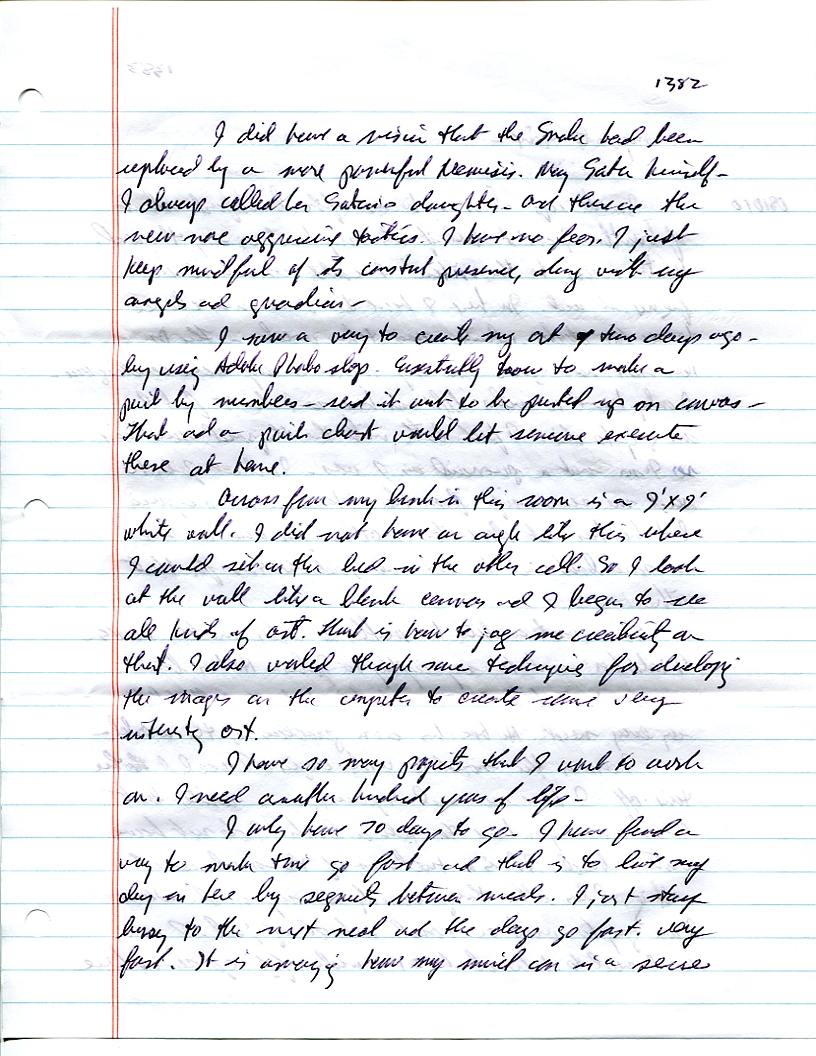 1382
I did have a vision that the Snake had been
replaced by a more powerful Nemesis. May Satan himself -
I always called her Satan's daughter - and therein the
new more aggressive tactics. I have no fear. I just
keep mindful of its constant presence, along with my
angels and guardian -
I saw a way to create my art two days ago -
by using Adobe Photo shop. Essentially how to make a
paint by numbers - send it out to be printed up on canvas -
That and a paint chart would let someone execute
these at home.
Across from my bunk in this room is a 9'x9'
white wall. I did not have an angle like this where
I could sit on the bed in the other cell. So I look
at the wall like a blank canvas and I began to see
all kinds of art. That is how to jog me creativity on
that. I also worked through some techniques for developing
the images on the computer to create some very
interesting art.
I have so many projects that I want to work
on. I need another hundred years of life -
I only have 70 days to go - I have found a
way to make time go fast and that is to live my
day in here by segments between meals. I just stay
busy to the next meal and the days go fast. very
fast. It is amazing how my mind can in a sense